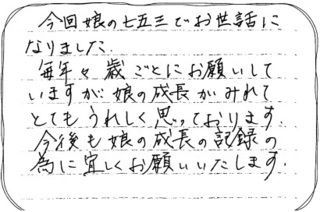 今回娘の七五三でお世話に
なりました.
毎年々歳ごとにお願いして
いますが娘の成長がみれて
とてもうれしく思っております.
今後も娘の成長の記録の
為に宜しくお願いいたします.